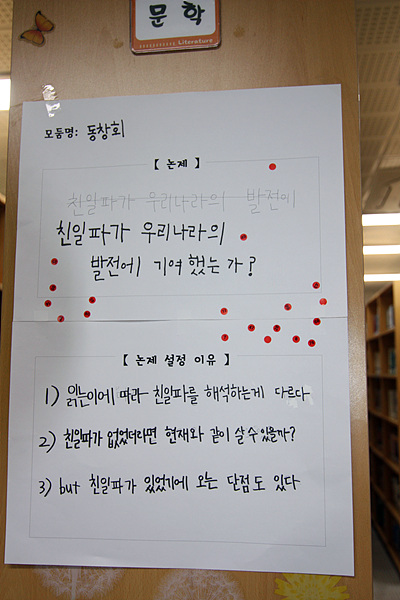 문학
Literature
모둠명: 동창회
【 논제 】
친일파가 우리나라의 발전에
친일파가 우리나라의
발전에 기여했는가?
【 논제 설정 이유 】
1) 읽는이에 따라 친일파를 해석하는게 다르다
2) 친일파가 없었더라면 현재와 같이 살 수 있을까?
3) but 친일파가 있었기에 오는 단점도 있다